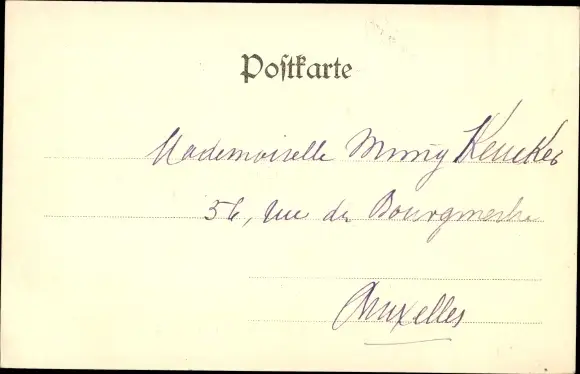 Postkarte
Mademoiselle Mimy Keucker
56, rue du Bourgmestre
Bruxelles